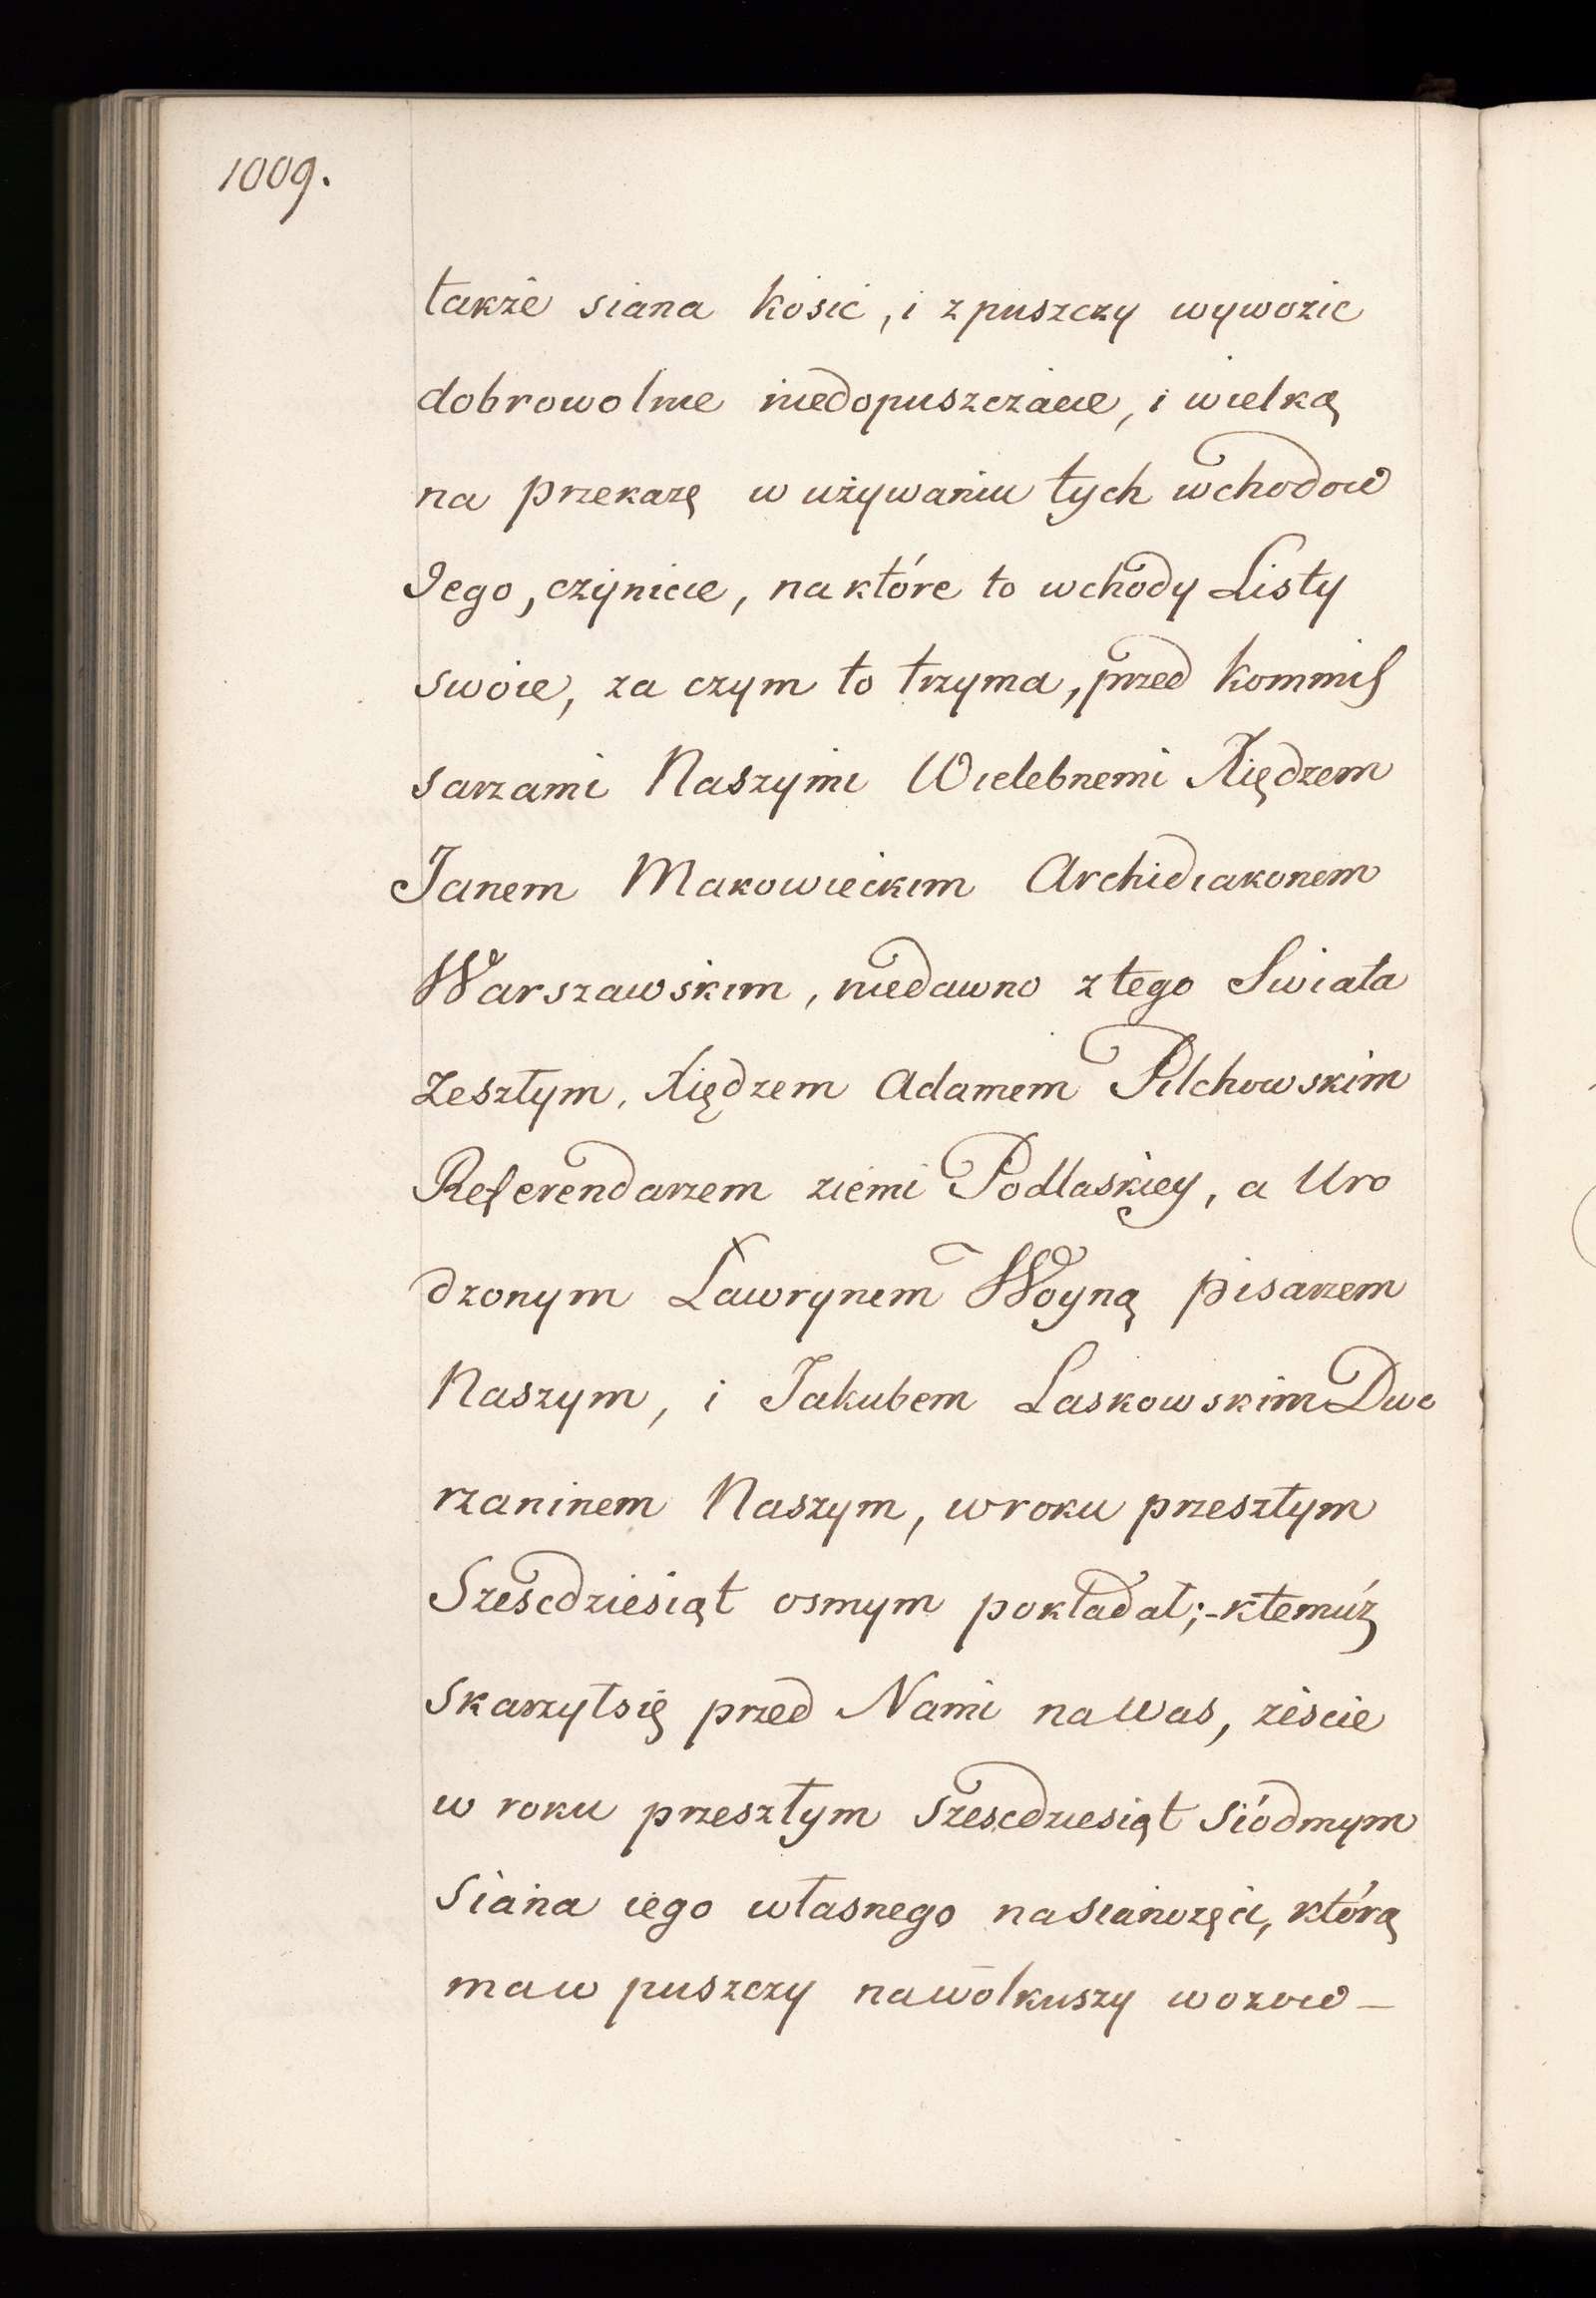 1009.
także siana kosić, i z puszczy wywozic
dobrowolnie niedopuszczacie, i wielką
na przekazę w używaniu tych wchodow
Jego, czynicie, na które to wchody Listy
swoie, za czym to trzyma, przed kommis
sarzami Naszymi Wielebnemi Xiędzem
Janem Makowieckim Archidiakonem
Warszawskim, niedawno z tego Swiata
Zeszłym, Xiędzem Adamem Pilchowskim
Referendarzem ziemi Podlaskiey, a Uro
dzonym Ławrynem Woyną pisarzem
Naszym, i Jakubem Laskowskim Dwo
rzaninem Naszym, w roku przeszłym
Szescdziesiąt osmym pokładał;- ktemúż
skarzyłsię przed Nami na Was, zescie
w roku przeszłym szescdziesiąt siódmym
Siana iego własnego nasianożęci, którą
ma w puszczy nawolkuszy wozow –